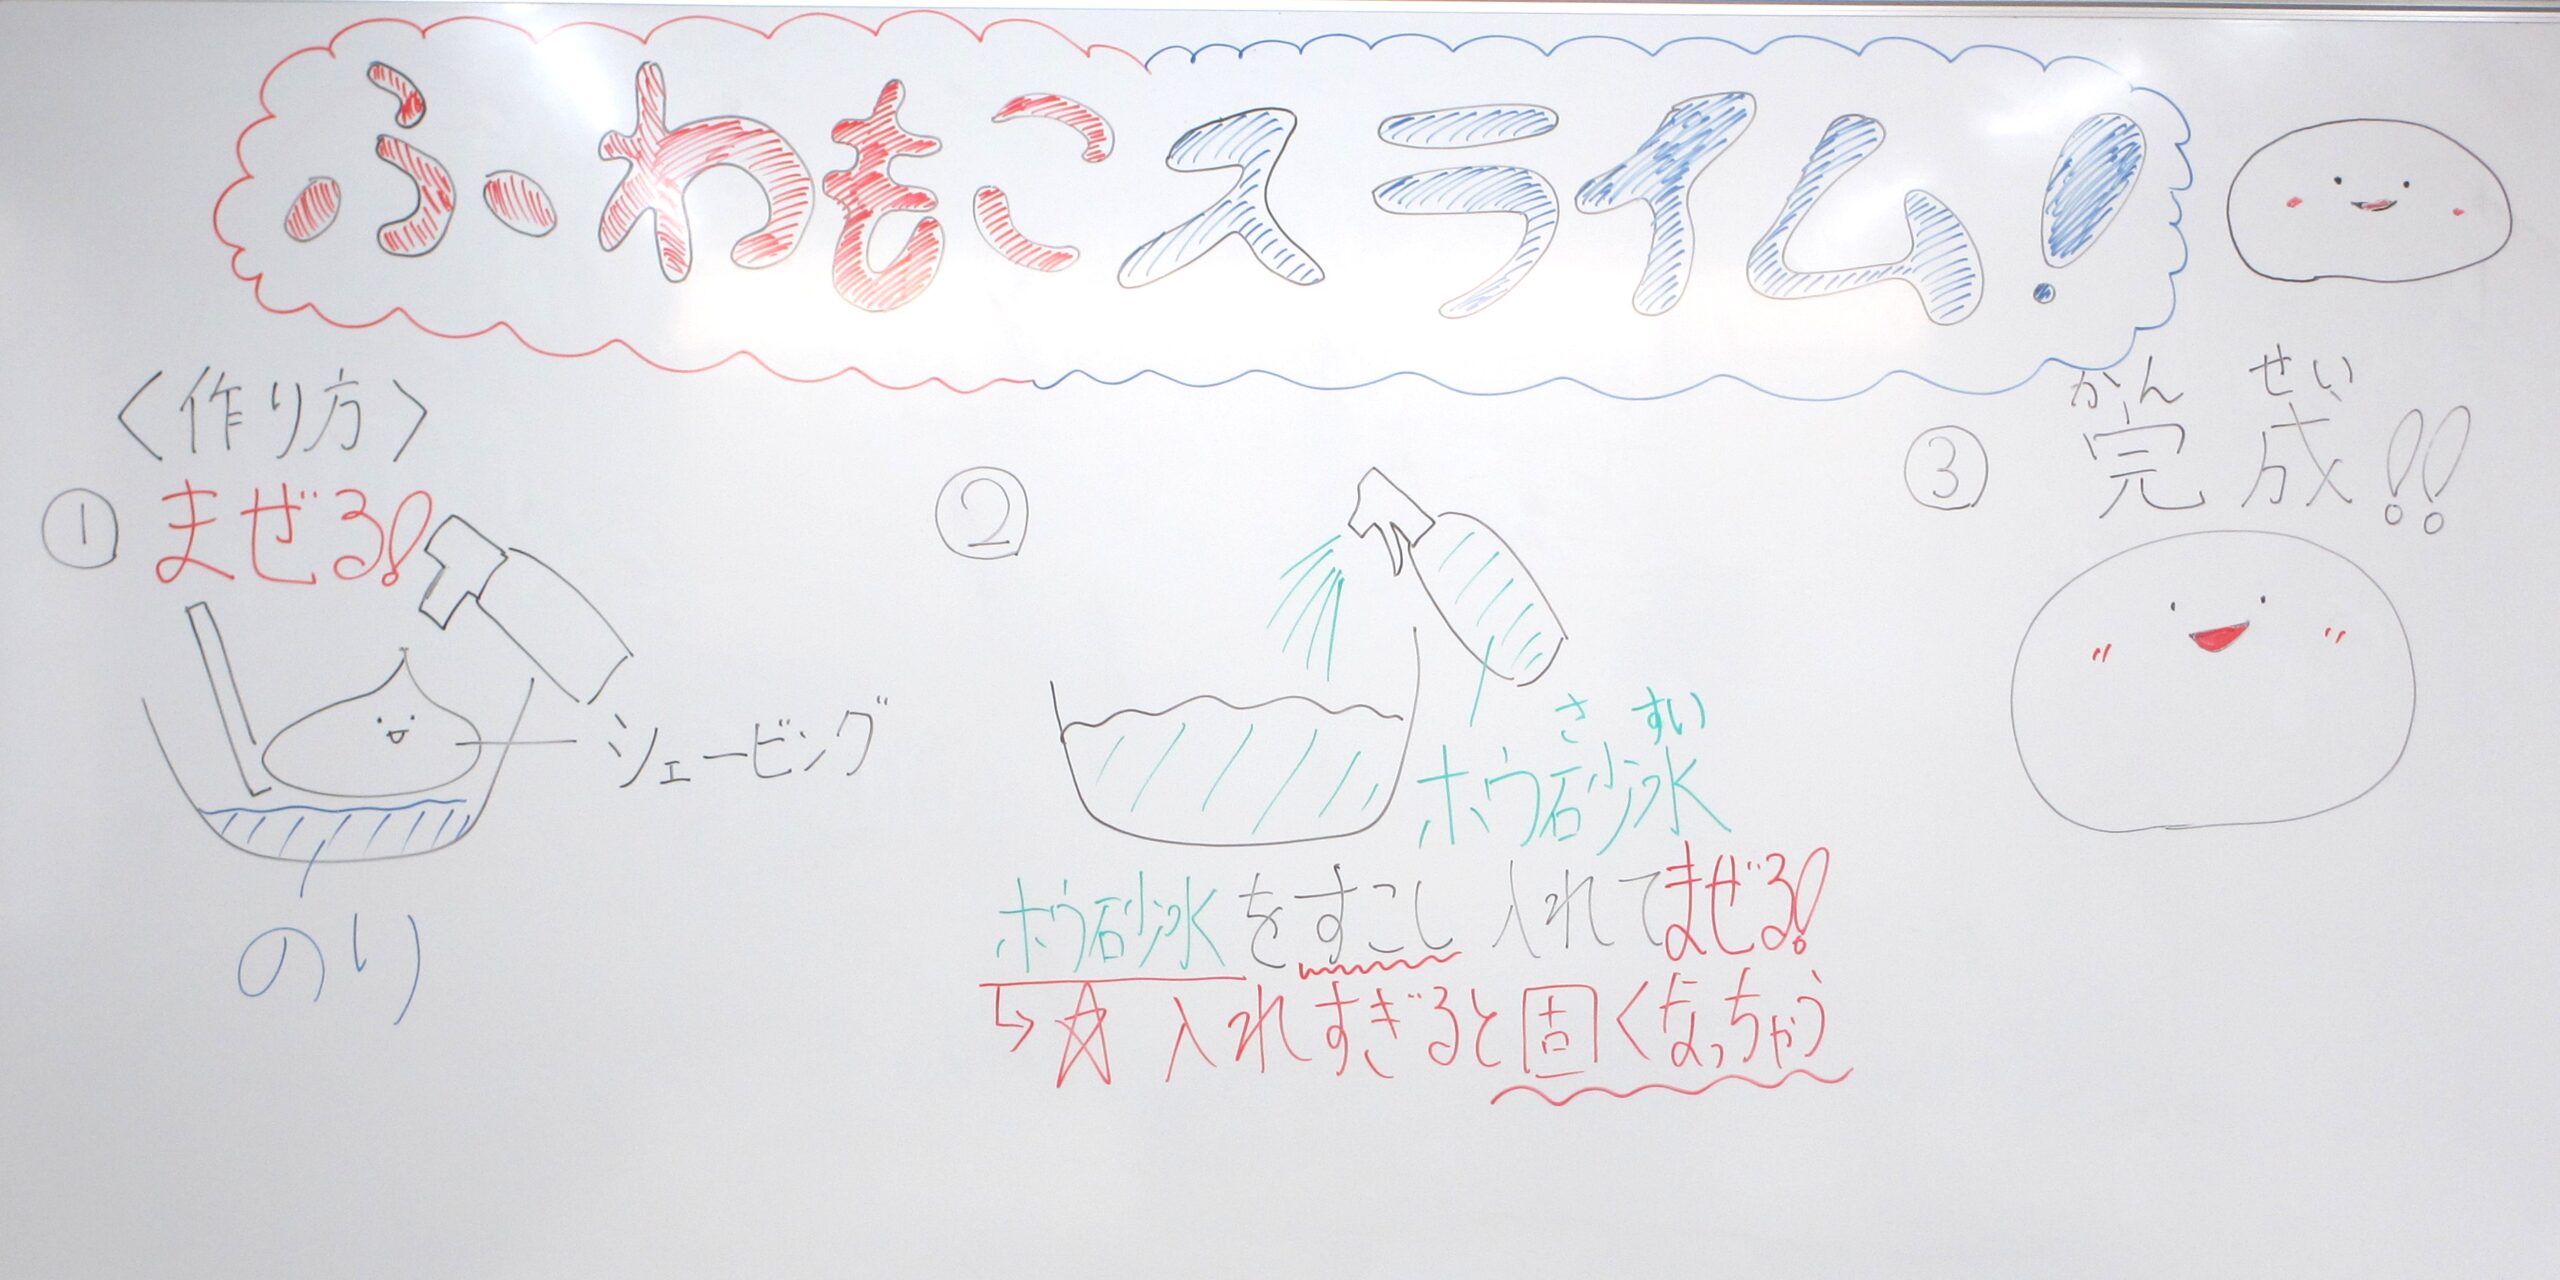 ふわもこスライム!
<作り方>
① まぜる!
シェービング
のり
②
さ すい
ホウ砂水
ホウ砂水をすこし入れてまぜる!
↳☆ 入れすぎると固くなっちゃう
かん せい
③ 完成!!